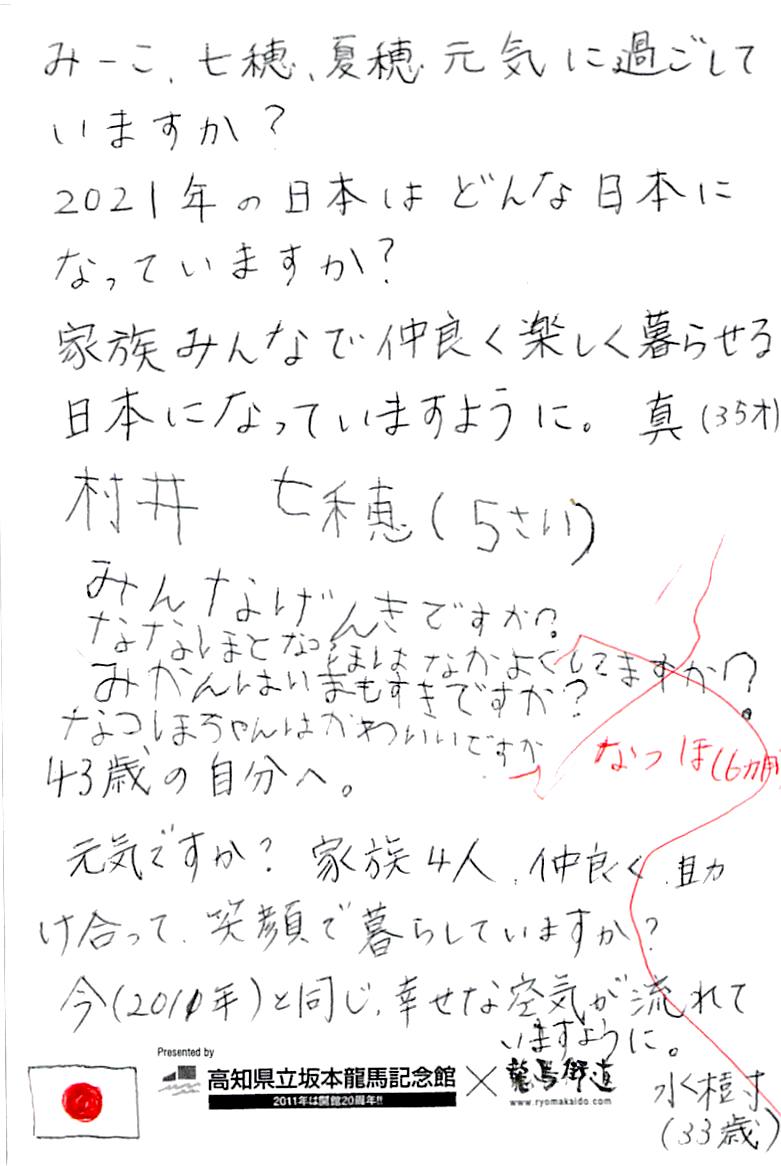 みーこ、七穂、夏穂元気に過ごして
いますか？
2021年の日本はどんな日本に
なっていますか？
家族みんなで仲良く楽しく暮らせる
日本になっていますように。 真(35才)
村井 七穂(5さい)
みんなげんきですか？
ななほとなつほはなかよくしてますか？
みかんはいまもすきですか？
なつほちゃんはかわいいですか
なつほ(6カ月)
43歳の自分へ。
元気ですか？ 家族4人、仲良く、助
け合って、笑顔で暮らしていますか？
今(2010年)と同じ、幸せな空気が流れて
いますように。
樹
(33歳)
Presented by
高知県立坂本龍馬記念館×龍馬街道
2011年は開館20周年!!
www.ryomakaido.com